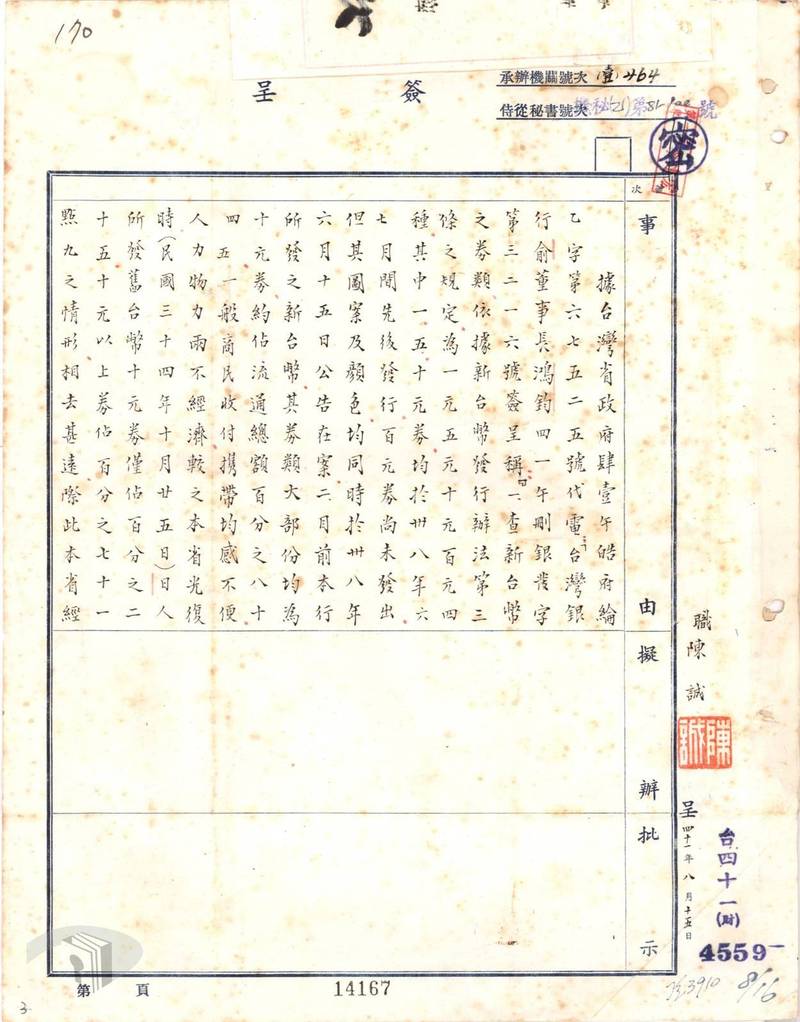 170
承辦機關號次 (壹)464
侍從秘書號次 機秘(乙)第81-
號
簽呈
密
次
事由
擬辦
批示
據台灣省政府肆壹午皓府綸
乙字第六七五二五號代電台灣銀
行俞董事長鴻鈞四一午刪銀發字
第三二一六號簽呈稱「一查新台幣
之券類依據新台幣發行辦法第三
條之規定為一元五元十元百元四
種其中一五十元券均於卅八年六
七月間先後發行百元券尚未發出
但其圖案及顏色均同時於卅八年
六月十五日公告在案二月前本行
所發之新台幣其券類大部份均為
十元券約佔流通總額百分之八十
四五一般商民收付携帶均感不便
人力物力兩不經濟較之本省光復
時(民國三十四年十月廿五日)日人
所發舊台幣十元券僅佔百分之二
十五十元以上券佔百分之七十一
點九之情形相去甚遠際此本省經
職陳誠
陳誠
呈 四十一年八月十五日
台四十一(財)
4559
8/16
第 頁
14167
3.